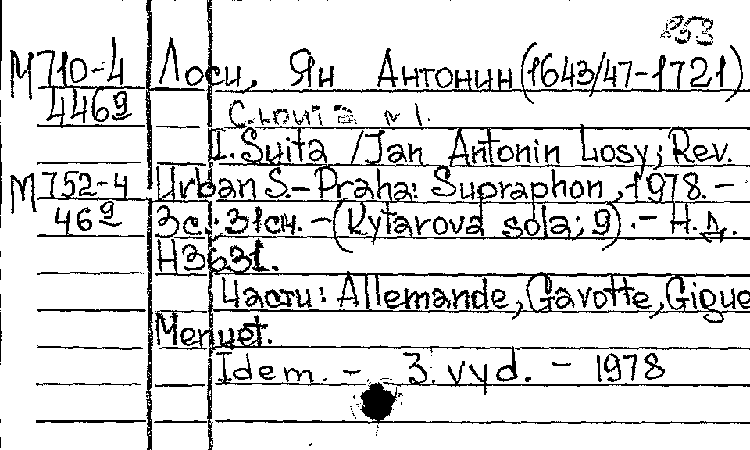 353
М710-4 Лоси, Ян Антонин (1643/47-1721)
4469 Сюита №1.
I. Suita / Jan Antonin Losy; Rev.
М752-4 Urban S.- Praha: Supraphon, 1978. -
469 3 с.; 31см. - (Kytarova sola; 9). - Н.д.
Н3631.
Части: Allemande, Gavotte, Gigue
Menuet.
Idem. - 3. vyd. - 1978